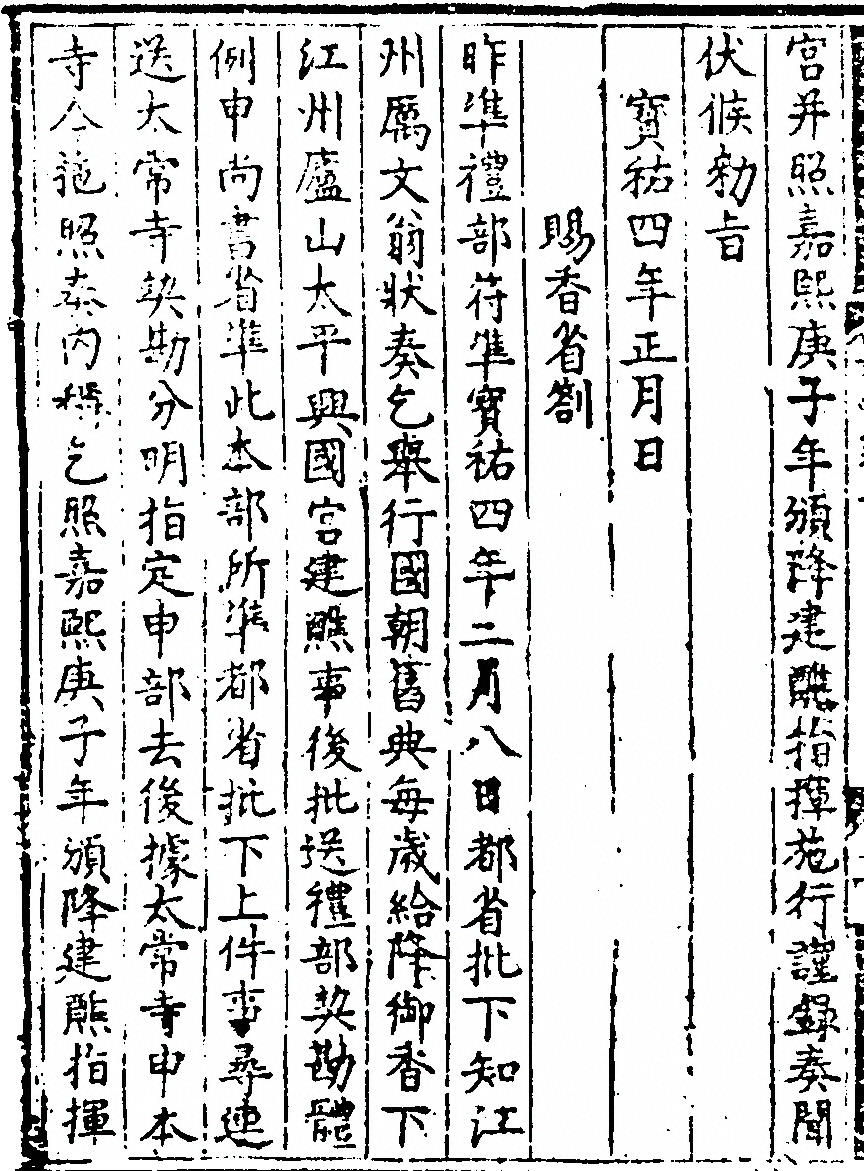 宮并照嘉熙庚子年頒降建醮指揮施行謹錄奏聞
伏候勅旨
寳祐四年正月日
賜香省劄
昨準禮部符準寳祐四年二月八日都省批下知江
州厲文翁狀奏乞舉行國朝舊典每歲給降御香下
江州廬山太平興國宮建醮事後批送禮部契勘體
例申尚書省準此本部所準都省批下上件事尋連
送太常寺契勘分明指定申部去後據太常寺申本
寺今範照奏內稱乞照嘉熙庚子年頒降建醮指揮